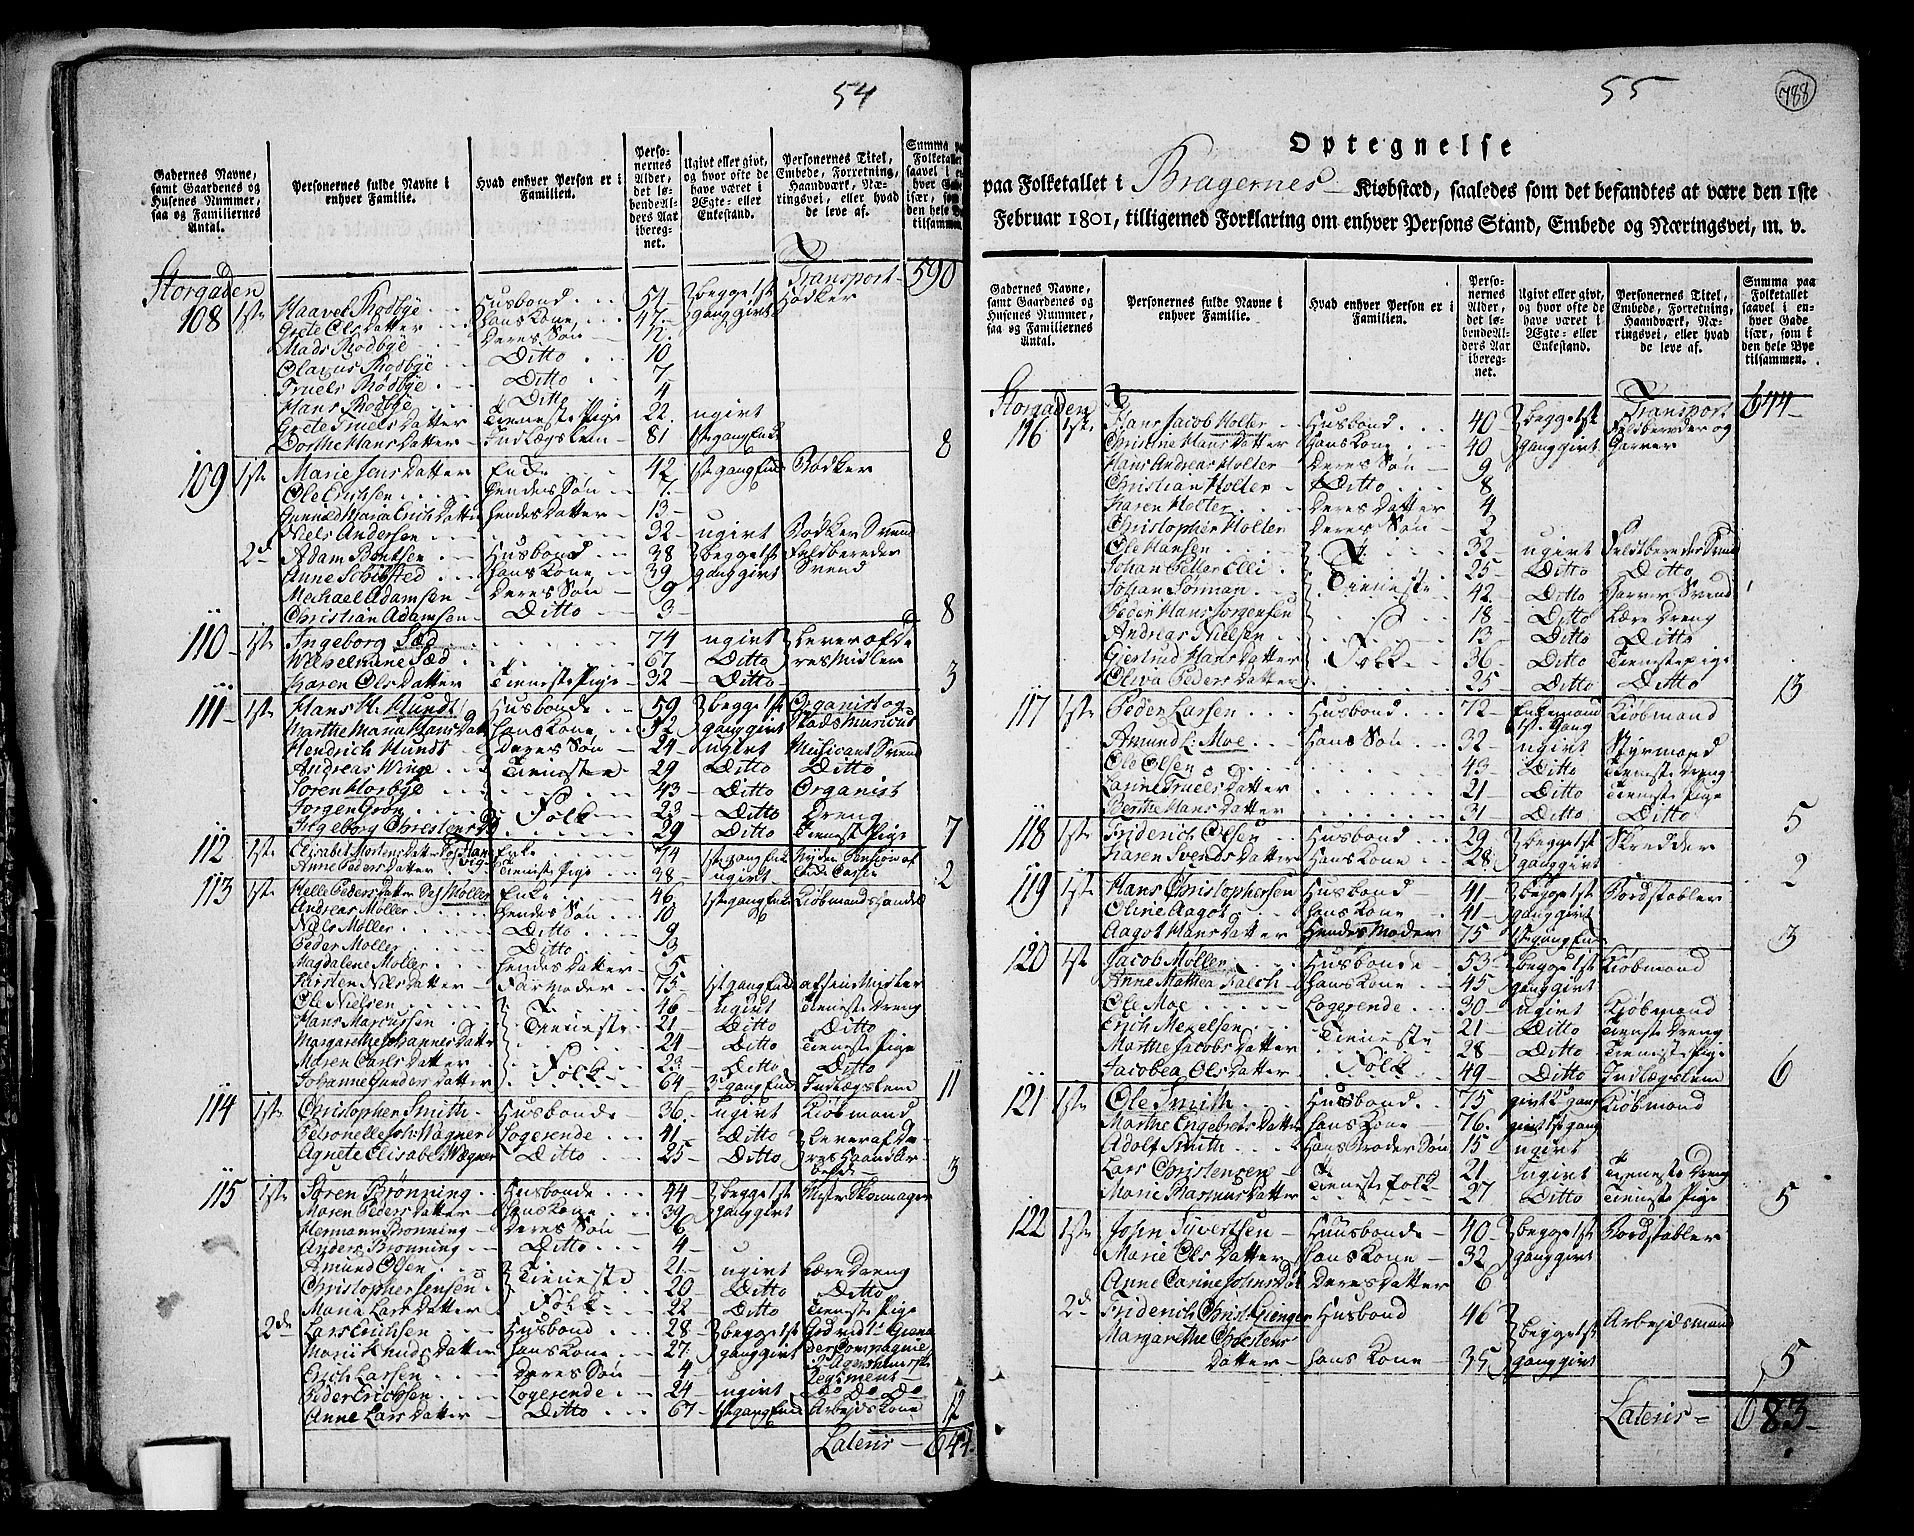 54
Gadernes Navne, samt Gaardenes og Husenes Nummer, saa og Familiernes Antal.
Personernes fulde Navne i enhver Familie.
Hvad enhver Person er i Familien.
Personernes Alder, det løbende Alders Aar iberegnet.
Ugivt eller givt, og hvor ofte de have været i Ægte- eller Enkestand.
Personernes Titel, Embede, Forretning, Haandværk, Næringsvei, eller hvad de leve af.
Summa paa Folketallet saavel i enhver Gade især, som i den hele Bye tilsammen.
Storgaden Transport 590
108 1ste Haavel Rodbye Husbond 54 begge 1ste Hødker
Grete Olsdatter Hans Kone 47 gang givt
Mads Rodbye Deres Søn 12
Olavus Rodbye Ditto 10
Truels Rødbye Ditto 7
Hans Rodbye Ditto 4
Grete Truels Datter Tieneste Pige 22 ugivt
Dorthe Hans Datter Indlægslem 81 1ste gang Enke
8
109 1ste Marie Jens Datter Enke 42 1ste gang Enke Bødker
Ole Erichsen Hendes Søn 7
Gunild Maria Erich Datter Hendes Datter 13
Niels Andersen 32 ugivt Bødker Svend
2d Adam Bentsen Husbond 38 begge 1ste Feldbereder
Anne Schibsted Hans Kone 39 gang givt Svend
Michael Adamsen Deres Søn 9
Christian Adamsen Ditto 3
8
110 1ste Ingeborg Sæd 74 ugivt Lever af De
Wilhelmine Sæd 67 Ditto res Midlen
Karen Ols Datter Tieneste Pige 32 Ditto
3
111 1ste Hans H. Hundt Husbonde 59 begge 1ste Organist og
Marthe Maria Hans Dat Hans Kone 52 gang givt Stads Musicus
Hendrich Hundt Deres Søn 24 ugivt Musicant Svend
Andreas Winge Tieneste 29 Ditto Ditto
Søren Horbye 43 Ditto Organist
Jørgen Grøn Folk 23 Ditto Dreng
Ingeborg Chrestens D 29 Ditto Tieneste Pige
7
112 1ste Elisabet Mortens Datter Enke 74 1ste gang Enke Nyder Pension af
Anne Peders Datter Tieneste Pige 38 ugivt
2
113 1ste Helle Peders Datter Sal Møller Enke 46 1ste gang Enke Kiøbmands Handel
Andreas Møller Hendes Søn 10
Niels Møller Ditto 9
Peder Møller Ditto 3
Magdalene Møller Hendes Datter 5
Kirsten Nils Datter Farmoder 75 1ste gang Enke af sine Midler
Ole Nielsen 46 ugivt Tieneste Dreng
Hans Marcussen Tieneste 21 Ditto Ditto
Margarethe Johannes Datter 24 Ditto Tieneste Pige
Maren Carls Datter Folk 23 Ditto Ditto
Johanne Gunders Datter 64 3 gang Enke Indlægslem
11
114 1ste Christopher Smith Husbonde 36 ugivt Kiøbmand
Petronelle Joh: Wagner Logerende 41 Ditto Lever af De
Agnete Elisabet Wagner Ditto 25 Ditto res Haand Ar
beide
3
115 1ste Søren Brønning Husbonde 44 begge 1ste Mester Skomager
Maren Peders Datter Hans Kone 39 gang givt
Hermann Brønning Deres Søn 6
Anders Brønning Ditto 4
Amund Olsen Tieneste 21 ugivt Lære Dreng
Christopher Jensen 20 Ditto Ditto
Maria Lars Datter Folk 22 Ditto Tieneste Pige
2de Lars Erichsen Husbond 28 begge 1ste
Marie Knuds Datter Hans Kone 27 gang givt der Compagnie
Erich Larsen Deres Søn 4
Peder Erichsen Logerende 24 ugivt Do Do Do
Anne Lars Datter Ditto 67 1ste gang Enke Arbejds Kone
12
Lateris 644
55
788
Optegnelse
paa Folketallet i Bragernes Kiøbstæd, saaledes som det befandtes at være den 1ste
Februar 1801, tilligemed Forklaring om enhver Persons Stand, Embede og Næringsvei, m. v.
Gadernes Navne, samt Gaardenes og Husenes Nummer, saa og Familiernes Antal.
Personernes fulde Navne i enhver Familie.
Hvad enhver Person er i Familien.
Personernes Alder, det løbende Alders Aar iberegnet.
Ugivt eller givt, og hvor ofte de have været i Ægte- eller Enkestand.
Personernes Titel, Embede, Forretning, Haandværk, Næringsvei, eller hvad de leve af.
Summa paa Folketallet saavel i enhver Gade især, som i den hele Bye tilsammen.
Storgaden Transport 644
116 1ste Hans Jacob Holter Husbond 40 begge 1ste Feldbereder og
Christine Hans Datter Hans Kone 40 gang givt Garver
Hans Andreas Holter Deres Søn 9
Christian Holter Ditto 8
Karen Holter Deres Datter 4
Christopher Holter Deres Søn 2
Ole Hansen 32 ugivt Feldtbereder Svend
Johan Petter Elli 25 Ditto Ditto
Johan Sørman Tieneste 42 Ditto Garver Svend
Peder Hans Jørgensen 18 Ditto Lære Dreng
Andreas Nielsen 13 Ditto Ditto
Giertrud Hans Datter Folk 36 Ditto Tieneste pige
Oliva Peders Datter 25 Ditto Ditto
13
117 1ste Peder Larsen Husbond 72 Enkemand Kiøbmand
1st gang
Amund L: Moe Hans Søn 32 ugivt Styrmand
Ole Olsen 43 Ditto Tieneste Dreng
Larine Truels Datter 21 Ditto Tieneste Pige
Berthe Hans Datter 31 Ditto Ditto
5
118 1ste Friderich Olsen Husbond 29 begge 1ste Skredder
Karen Svends Datter Hans Kone 28 gang givt
2
119 1ste Hans Christophersen Husbond 41 begge 1ste Bordstabler
Oline Aagot Hans Kone 41 gang givt
Aagot Hans Datter Hendes Moder 75 1ste gang Enke
3
120 1ste Jacob Møller Husbonde 53 begge 1ste Kiøbmand
Anne Mathea Falch Hans Kone 45 gang givt
Ole Moe Logerende 30 ugivt Kiøbmand
Erich Mekelsen Tieneste 21 Ditto Tieneste Dreng
Marthe Jacobs Datter 28 Ditto Tieneste Pige
Jacobea Ols Datter Folk 49 Ditto Indlægslem
6
121 1ste Ole Smith Husbond 75 givt 2 gang Kiøbmand
Marthe Engebrets Datter Hans Kone 76 givt 1ste gang
Adolf Smith Hans Broder Søn 15 ugivt
Lars Christensen Tieneste Folk 21 ugivt Tieneste Dreng
Marie Rasmus Datter 27 Ditto Tieneste Pige
5
122 1ste John Syvertsen Huusbonde 40 begge 1ste Bordstabler
Marie Ols Datter Hans Kone 32 gang givt
Anne Carine Johns Dat Deres Datter 6
2de Friderich Christ: Gienger Husbond 46 begge 1ste Arbejdsmand
Margarethe Chrestens
Datter Hans Kone 35 gang givt
5
Lateris 683